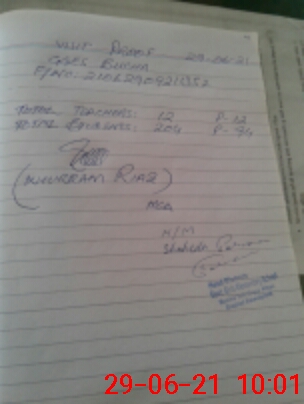 VISIT PROOF 29-06-21
GGES BUCHA
F/NO. 2106290921352
TOTAL TEACHERS: 12 P-12
TOTAL STUDENTS: 204 P-94
(KHURRAM RIAZ)
MEA
H/M
Shaheda
Head
29-06-21 10:01